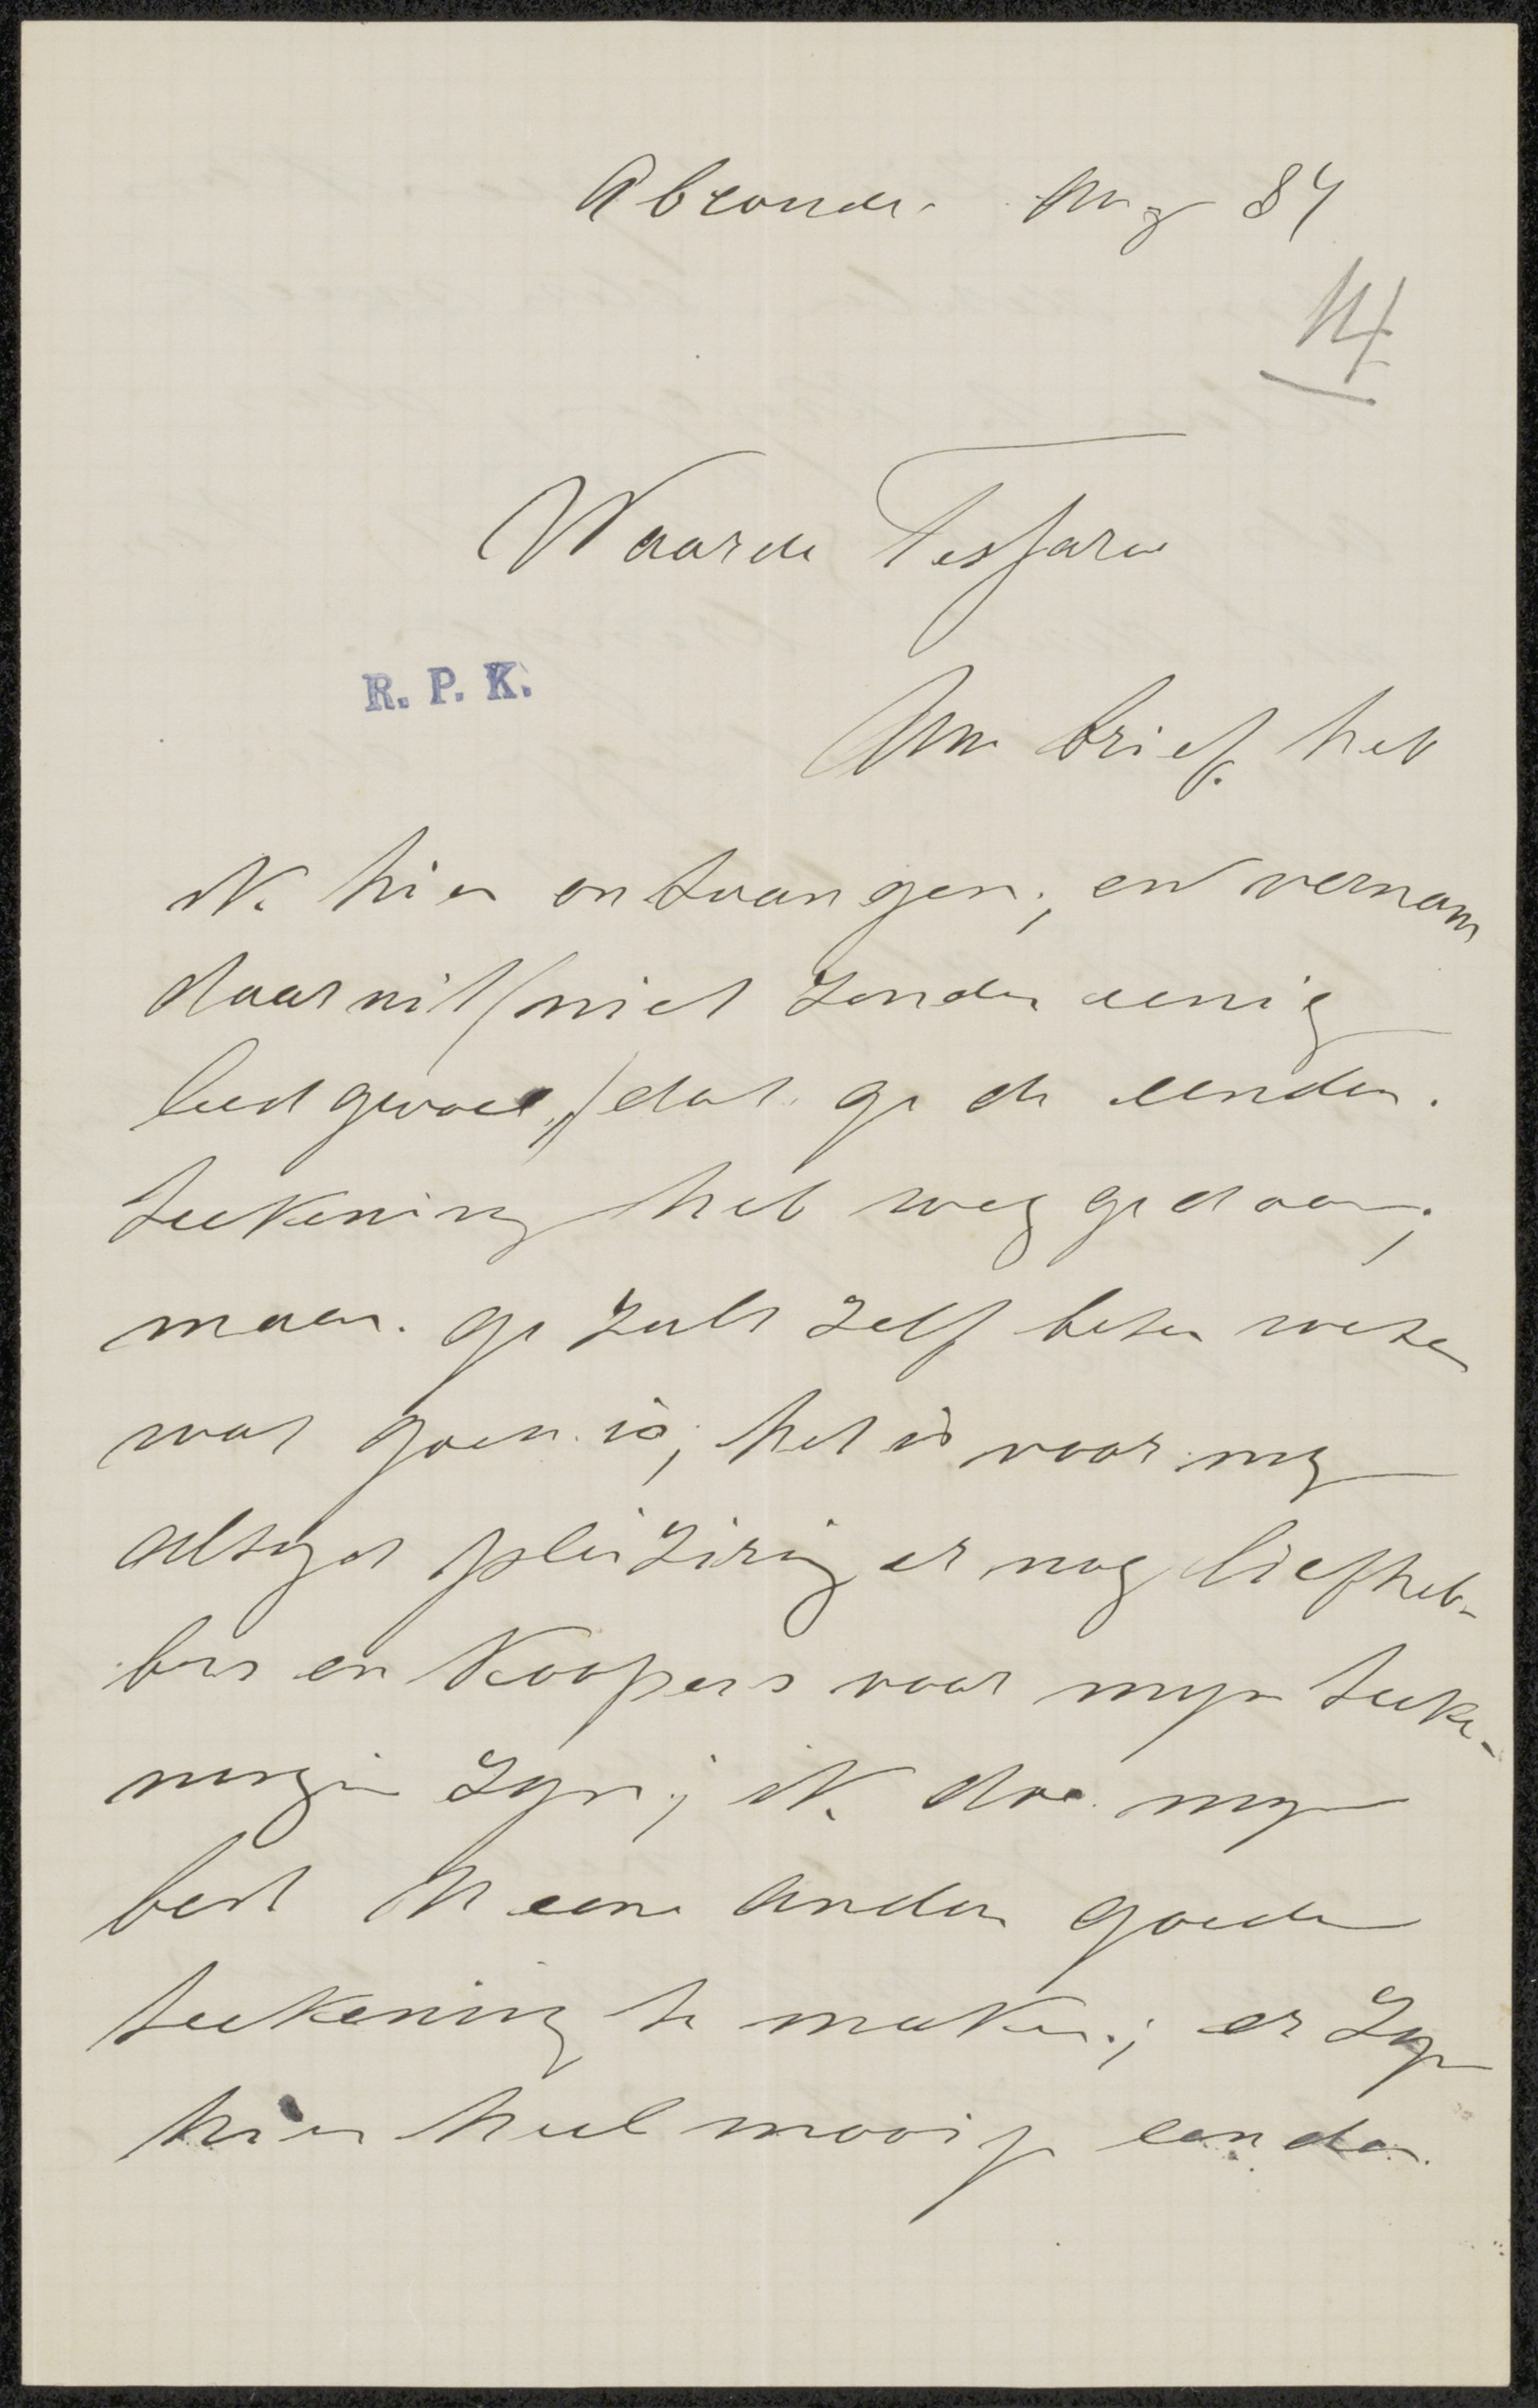 Abcoude. Aug 84
14
Waarde Tessaro
R. P. K.
Uw brief heb
ik hier ontvangen; en vernam
daaruit (niet zonder eenig
leedgevoel,) dat ge de eenden.
teekening heb weg gedaan;
maar. ge zult zelf beter weten
wat goed is; het is voor mij
altijd pleizirig er nog liefheb-
bers en koopers voor mijn teeke-
ningen zijn; ik doe mijn
best U eene andere goede
teekening te maken; er zijn
hier heel mooije eenden.